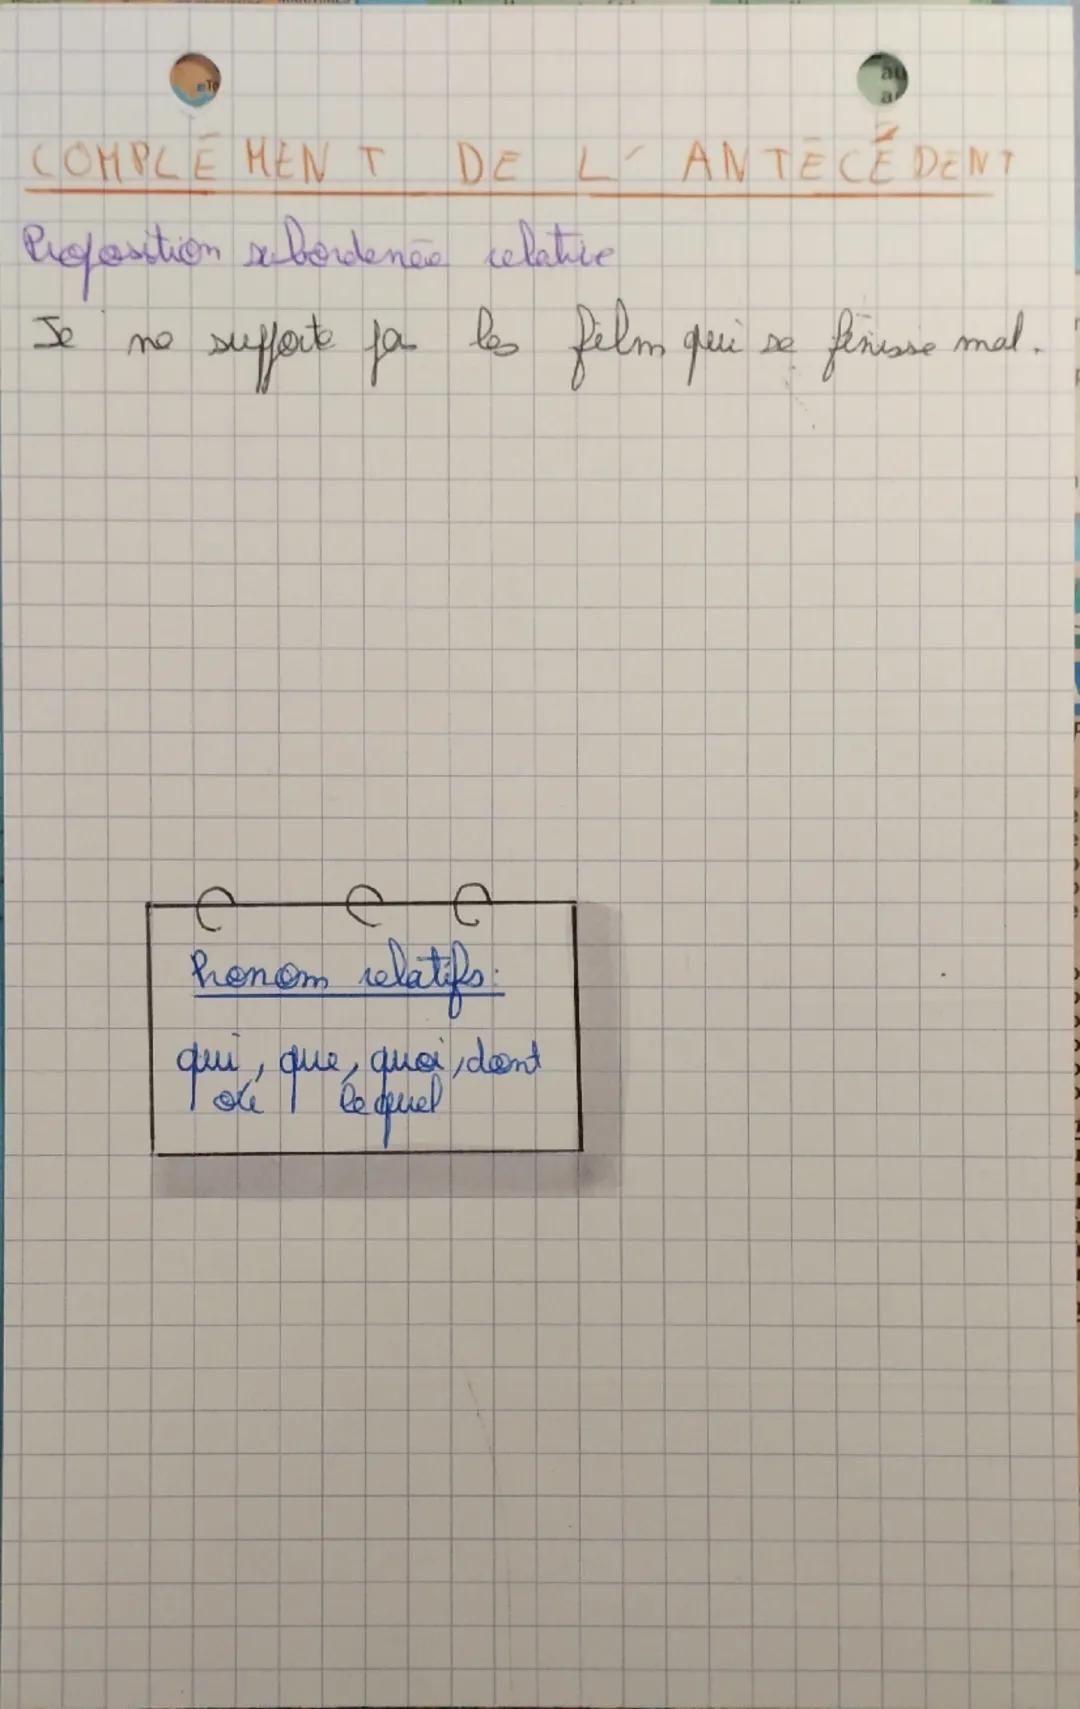 COMPLÉMENT DE L'ANTÉCÉDENT
Proposition subordenée relative
Je ne supporte pas les film qui se finisse mal.
Pronom relatifs:
qui, que, quoi, dont
où lequel